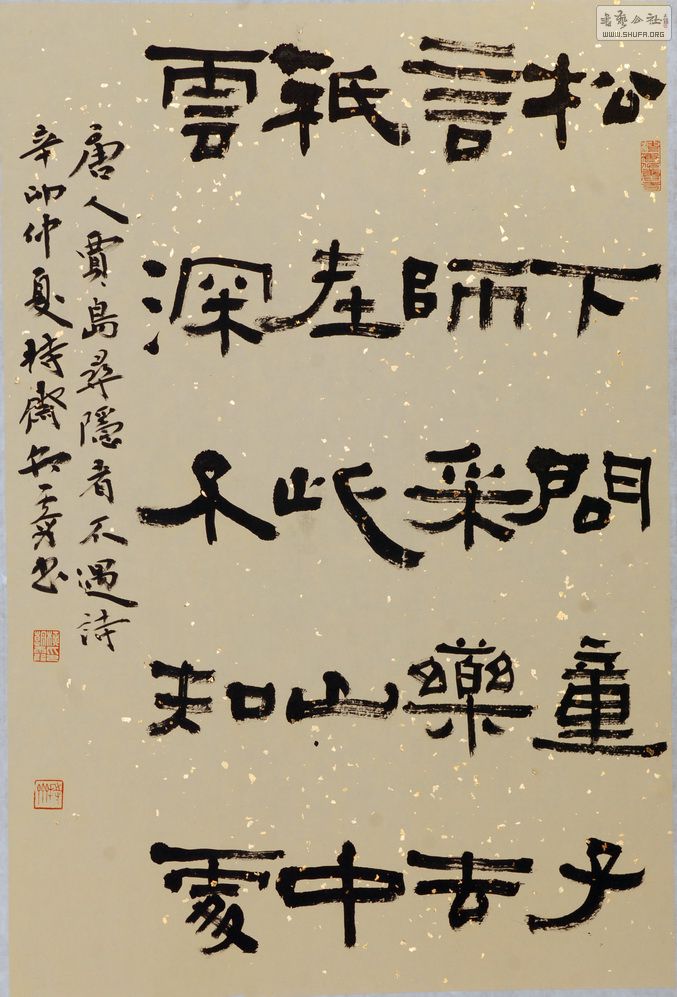 松下問童子
言師采藥去
祇在此山中
雲深不知處
唐人賈島尋隱者不遇詩
辛卯仲夏 書
書藝公社
WWW.SHUFA.ORG